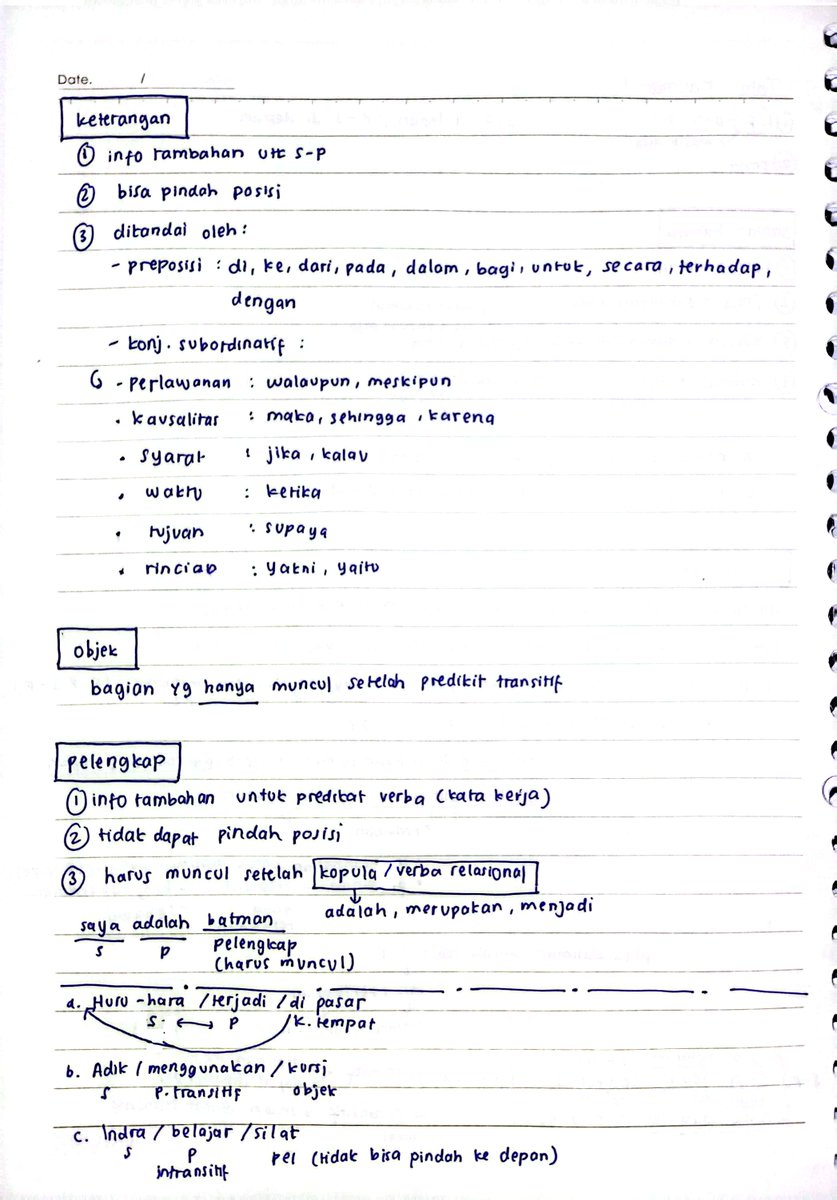 Date. /
keterangan
① info tambahan utk S-P
② bisa pindah posisi
③ ditandai oleh:
- preposisi : di, ke, dari, pada, dalam, bagi, untuk, secara, terhadap,
dengan
- konj. subordinatif :
- perlawanan : walaupun, meskipun
• kausalitas : maka, sehingga, karena
• syarat : jika, kalau
• waktu : ketika
• tujuan : supaya
• rincian : yakni, yaitu
objek
bagian yg hanya muncul setelah predikit transitif
pelengkap
① info tambahan untuk predikat verba (kata kerja)
② tidak dapat pindah posisi
③ harus muncul setelah kopula / verba relasional
adalah, merupakan, menjadi
saya adalah batman
S P pelengkap
(harus muncul)
a. Huru-hara / terjadi / di pasar
S ↔ P K. tempat
b. Adik / menggunakan / kursi
S P. transitif objek
c. Indra / belajar / silat
S P pel (tidak bisa pindah ke depan)
intransitif